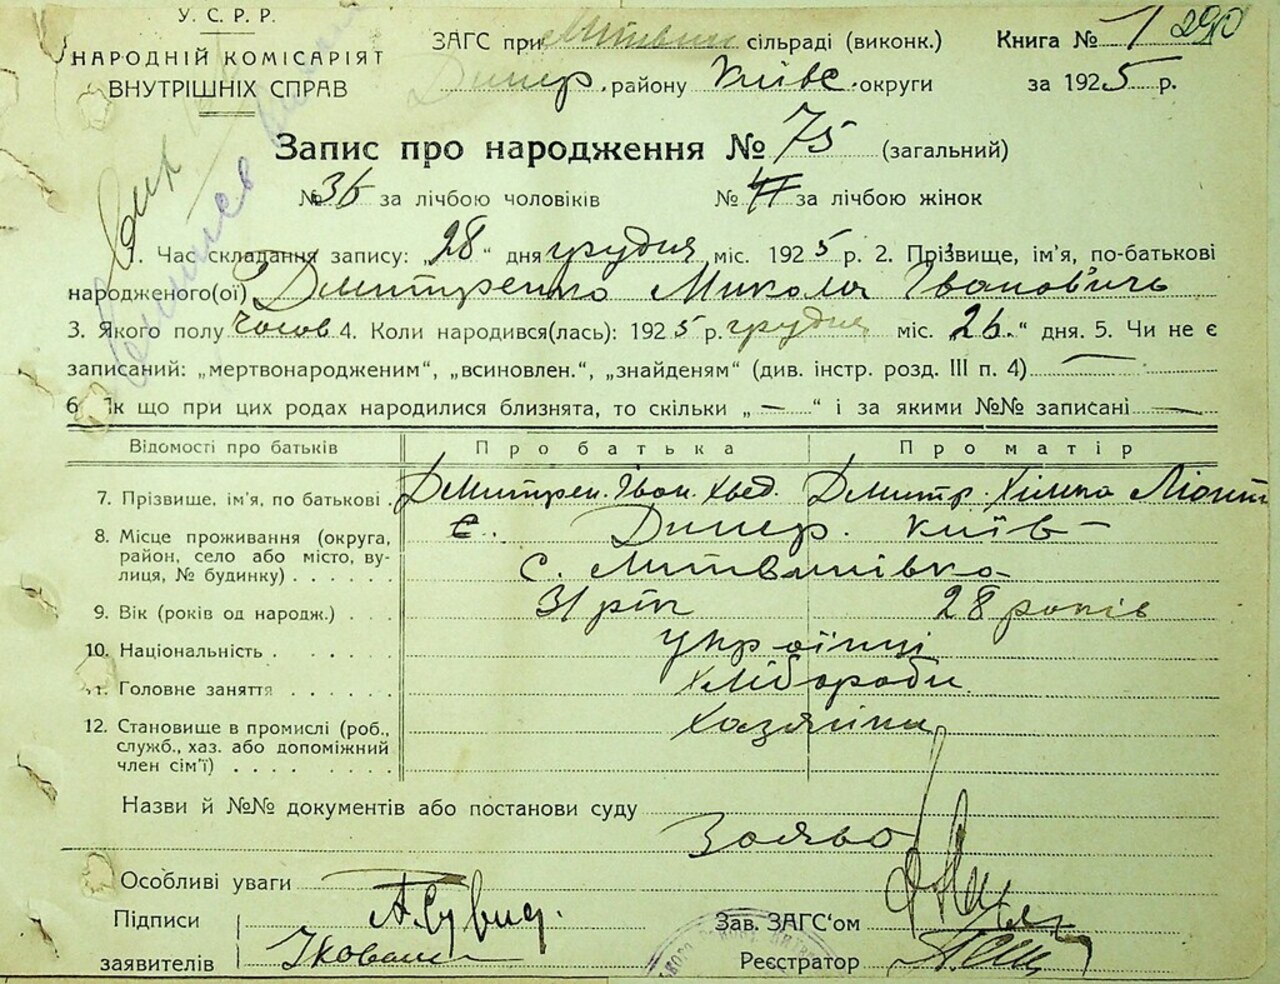 У. С. Р. Р.
НАРОДНІЙ КОМІСАРІЯТ
ВНУТРІШНІХ СПРАВ
ЗАГС при сільраді (виконк.) Книга № 1 290
Димер. району Київс. округи за 1925 р.
Запис про народження № 75 (загальний)
№ 36 за лічбою чоловіків № за лічбою жінок
1. Час складання запису: „28“ дня грудня міс. 1925 р. 2. Прізвище, ім'я, по-батькові
народженого(ої) Дмитренко Микола Іванович
3. Якого полу 4. Коли народився(лась): 1925 р. грудня міс. 26.“ дня. 5. Чи не є
записаний: „мертвонародженим“, „всиновлен.“, „знайденям“ (див. інстр. розд. III п. 4) —
6 Як що при цих родах народилися близнята, то скільки „—“ і за якими №№ записані —
Відомості про батьків Про батька Про матір
7. Прізвище, ім'я, по батькові. Дмитрен. Іван. Хвед. Дмитр.
8. Місце проживання (округа, район, село або місто, вулиця, № будинку) Димер. Київ—
с. Литвинівка
9. Вік (років од народж.) 31 рік 28 років
10. Національність українці
11. Головне заняття хлібороби
12. Становище в промислі (роб., служб., хаз. або допоміжний член сім'ї) хазяїни
Назви й №№ документів або постанови суду
Заява
Особливі уваги
Підписи
заявителів
Зав. ЗАГС‘ом
Реєстратор